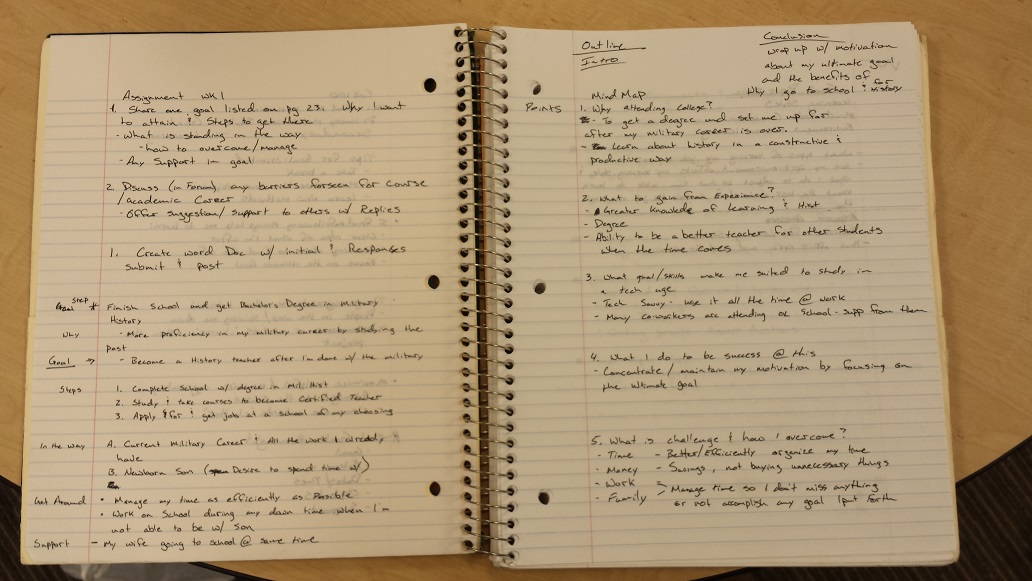 Assignment WK 1
1. Share one goal listed on pg 23. Why I want
to attain & Steps to get there
- What is standing in the way
- how to overcome/manage
- Any Support in goal
2. Discuss (in Forum) any barriers forseen for course
/academic Career
- Offer Suggestion/Support to others w/ Replies
1. Create word Doc w/ initial & Responses
submit & post
Step
Goal * Finish School and get Bachelor's Degree in Military
History
Why - More proficiency in my military career by studying the
past
Goal → - Become a History teacher after I'm done w/ the military
Steps 1. Complete School w/ degree in Mil Hist
2. Study & take courses to become Certified Teacher
3. Apply for & get job at a school of my choosing
In the way A. Current Military Career & All the work I already
have
B. Newborn Son (Desire to spend time w/)
Get Around • Manage my time as efficiently as Possible
• Work on School during my down time when I'm
not able to be w/ Son
Support - My wife going to school @ same time
Outline
Intro
Conclusion
wrap up w/ motivation
about my ultimate goal
and the benefits of
Why I go to school for History
Mind Map
Points 1. Why attending College?
- To get a degree and set me up for
after my military career is over.
- Learn about history in a constructive &
productive way
2. What to gain from Experience?
- Greater Knowlede of Learning & Hist
- Degree
- Ability to be a better teacher for other students
when the time comes
3. What goal/skills make me suited to study in
a tech age
- Tech Savvy - use it all the time @ work
- Many co-workers are attending School - supp from them
4. What I do to be success @ this
- Concentrate / maintain my motivation by focusing on
the Ultimate goal
5. What is challenge & how I overcome?
- Time - Better/Efficiently organize my time
- Money - Savings, not buying unnecessary things
- Work
- Family > Manage time so I don't miss anything
or not accomplish any goal I put forth